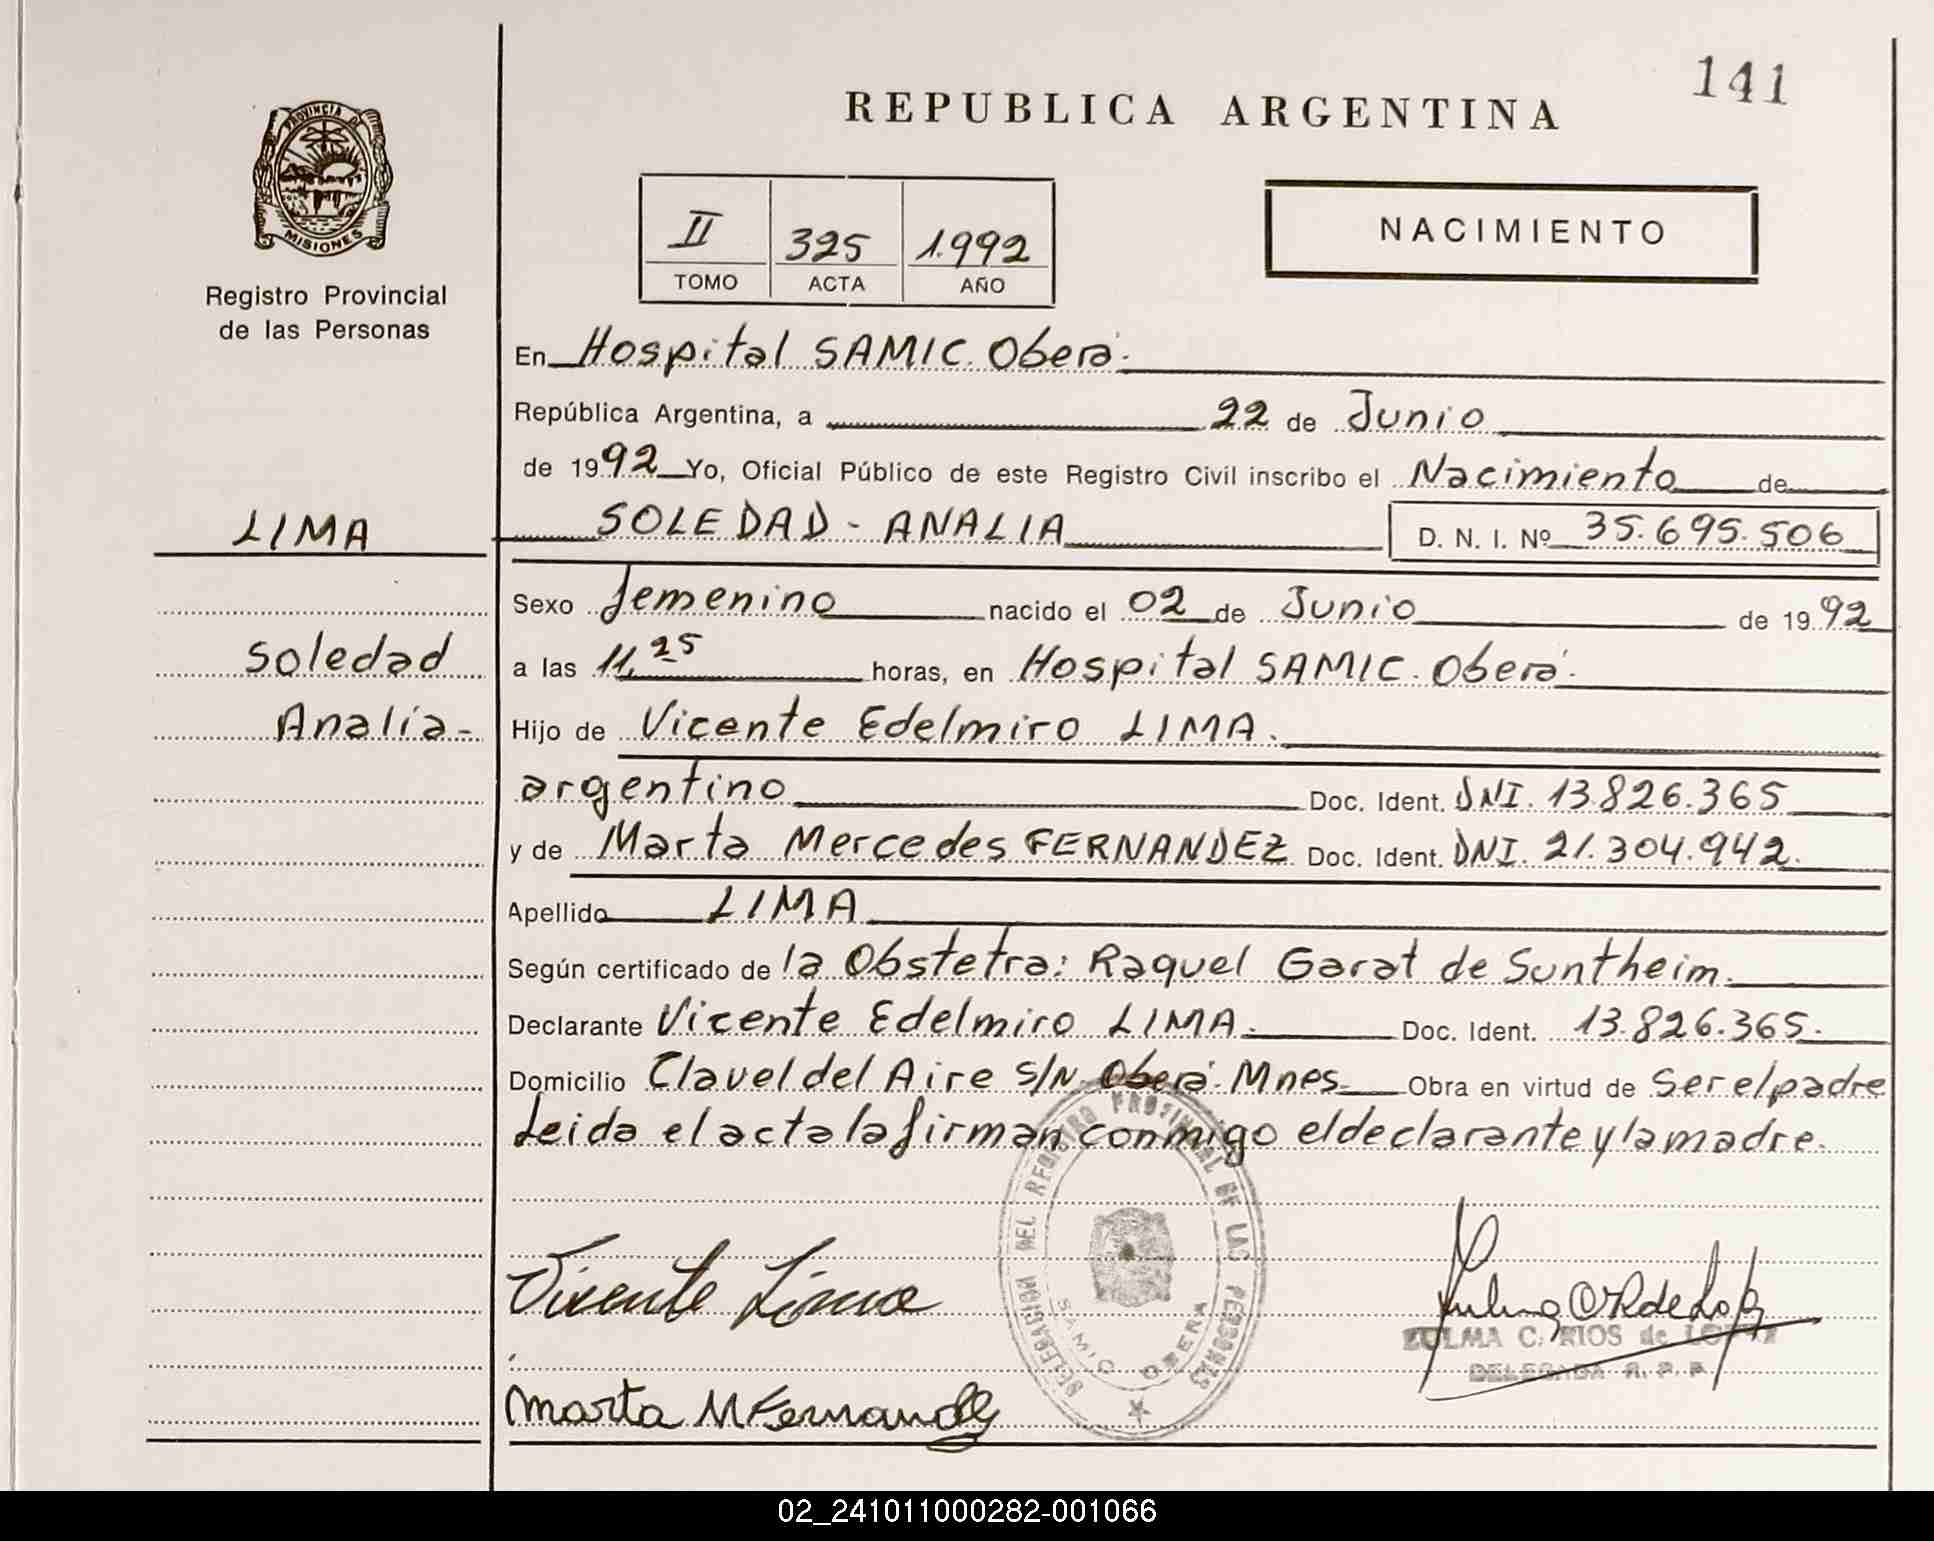 141
REPUBLICA ARGENTINA
PROVINCIA DE
MISIONES
Registro Provincial
de las Personas
II 325 1.992
TOMO ACTA AÑO
NACIMIENTO
En Hospital SAMIC. Oberá.
República Argentina, a 22 de Junio
de 1992 Yo, Oficial Público de este Registro Civil inscribo el Nacimiento de
LIMA
SOLEDAD - ANALIA D. N. I. Nº 35.695.506
Sexo femenino nacido el 02 de Junio de 1992
Soledad
a las 11,25 horas, en Hospital SAMIC. Oberá.
Analía-
Hijo de Vicente Edelmiro LIMA.
argentino Doc. Ident. DNI. 13.826.365
y de Marta Mercedes FERNANDEZ Doc. Ident. DNI. 21.304.942.
Apellido LIMA
Según certificado de la Obstetra: Raquel Garat de Suntheim.
Declarante Vicente Edelmiro LIMA. Doc. Ident. 13.826.365.
Domicilio Clavel del Aire S/N. Oberá. Mnes. Obra en virtud de Ser el padre
Leida el acta la firman conmigo el declarante y la madre.
DELEGACION DEL REGISTRO PROVINCIAL DE LAS PERSONAS
SAMIC OBERA
Vicente Lima
ZULMA C. RIOS de LOPEZ
DELEGADA R. P. P.
Marta M Fernandez
02_241011000282-001066